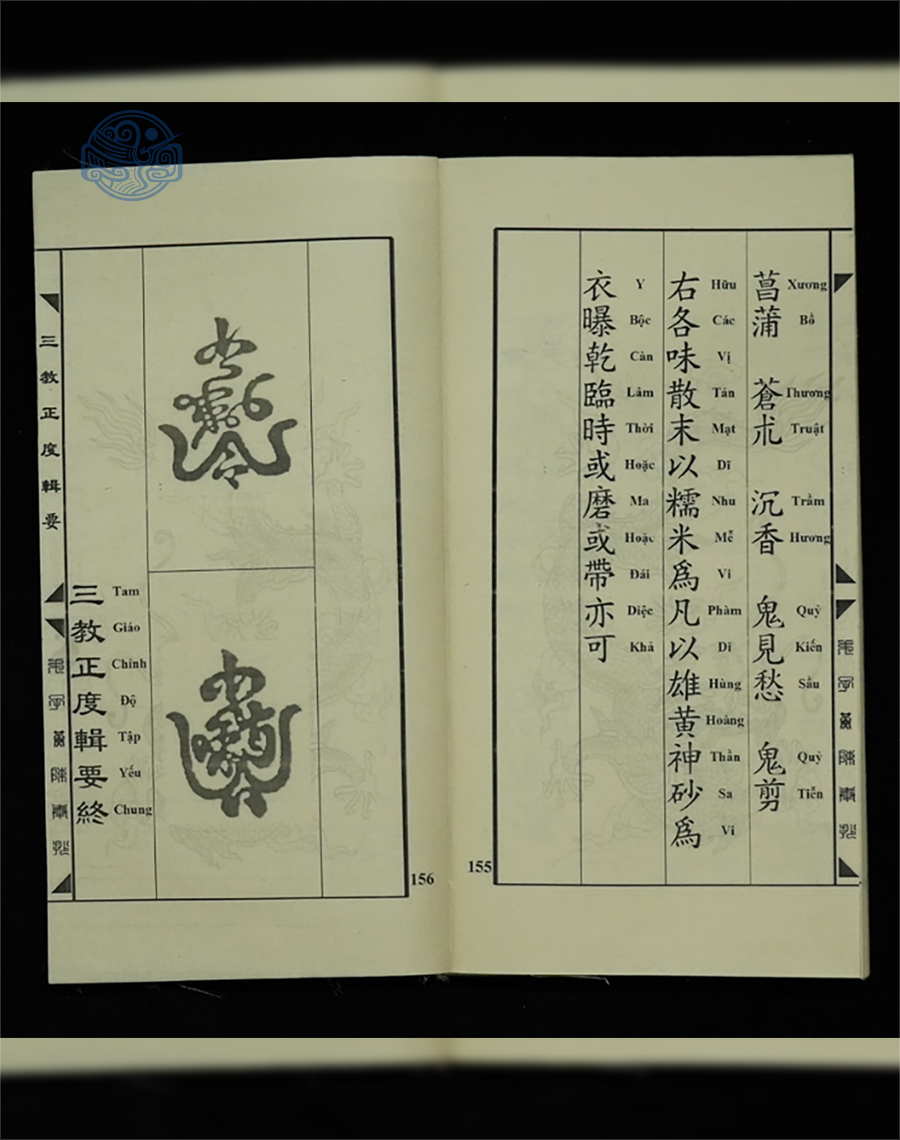 菖蒲 蒼朮 沉香 鬼見愁 鬼剪
Xương Bồ Thương Truật Trầm Hương Quỷ Kiến Sầu Quỷ Tiễn
右各味散末以糯米爲凡以雄黄神砂爲
Hữu Các Vị Tán Mạt Dĩ Nhu Mễ Vi Phàm Dĩ Hùng Hoàng Thần Sa Vi
衣曝乾臨時或磨或帶亦可
Y Bộc Càn Lâm Thời Hoặc Ma Hoặc Đái Diệc Khả
155
156
Tam Giáo Chính Độ Tập Yếu Chung
三教正度輯要終
三教正度輯要